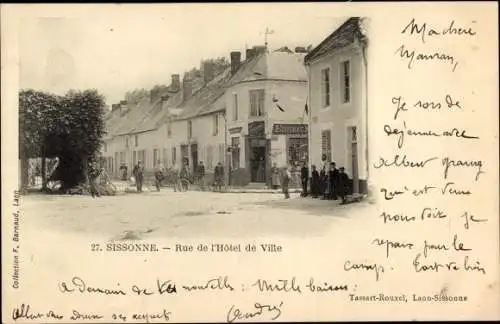 Ma chère
maman,
Je sors de
déjeuner avec
Albert
qui est venu
nous voir, je
repars pour le
camp, tout va bien
Collection F. Barnaud, Laon.
27. SISSONNE. — Rue de l'Hôtel de Ville
à Demain de nouvelles. Mille baisers
André
Albert
Tassart-Rouxel, Laon-Sissonne